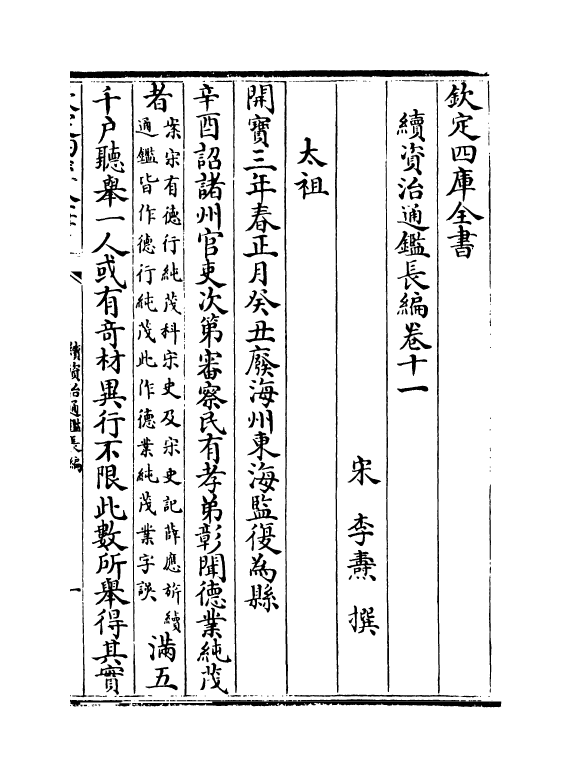 欽定四庫全書
續資治通鑑長編卷十一
宋 李燾 撰
太祖
開寶三年春正月癸丑廢海州東海監復為縣
辛酉詔諸州官吏次第審察民有孝弟彰聞德業純茂
者案宋有德行純茂科宋史及宋史記薛應旂續
通鑑皆作德行純茂此作德業純茂業字誤滿五
千户聽舉一人或有奇材異行不限此數所舉得其實
續資治通鑑長編
一